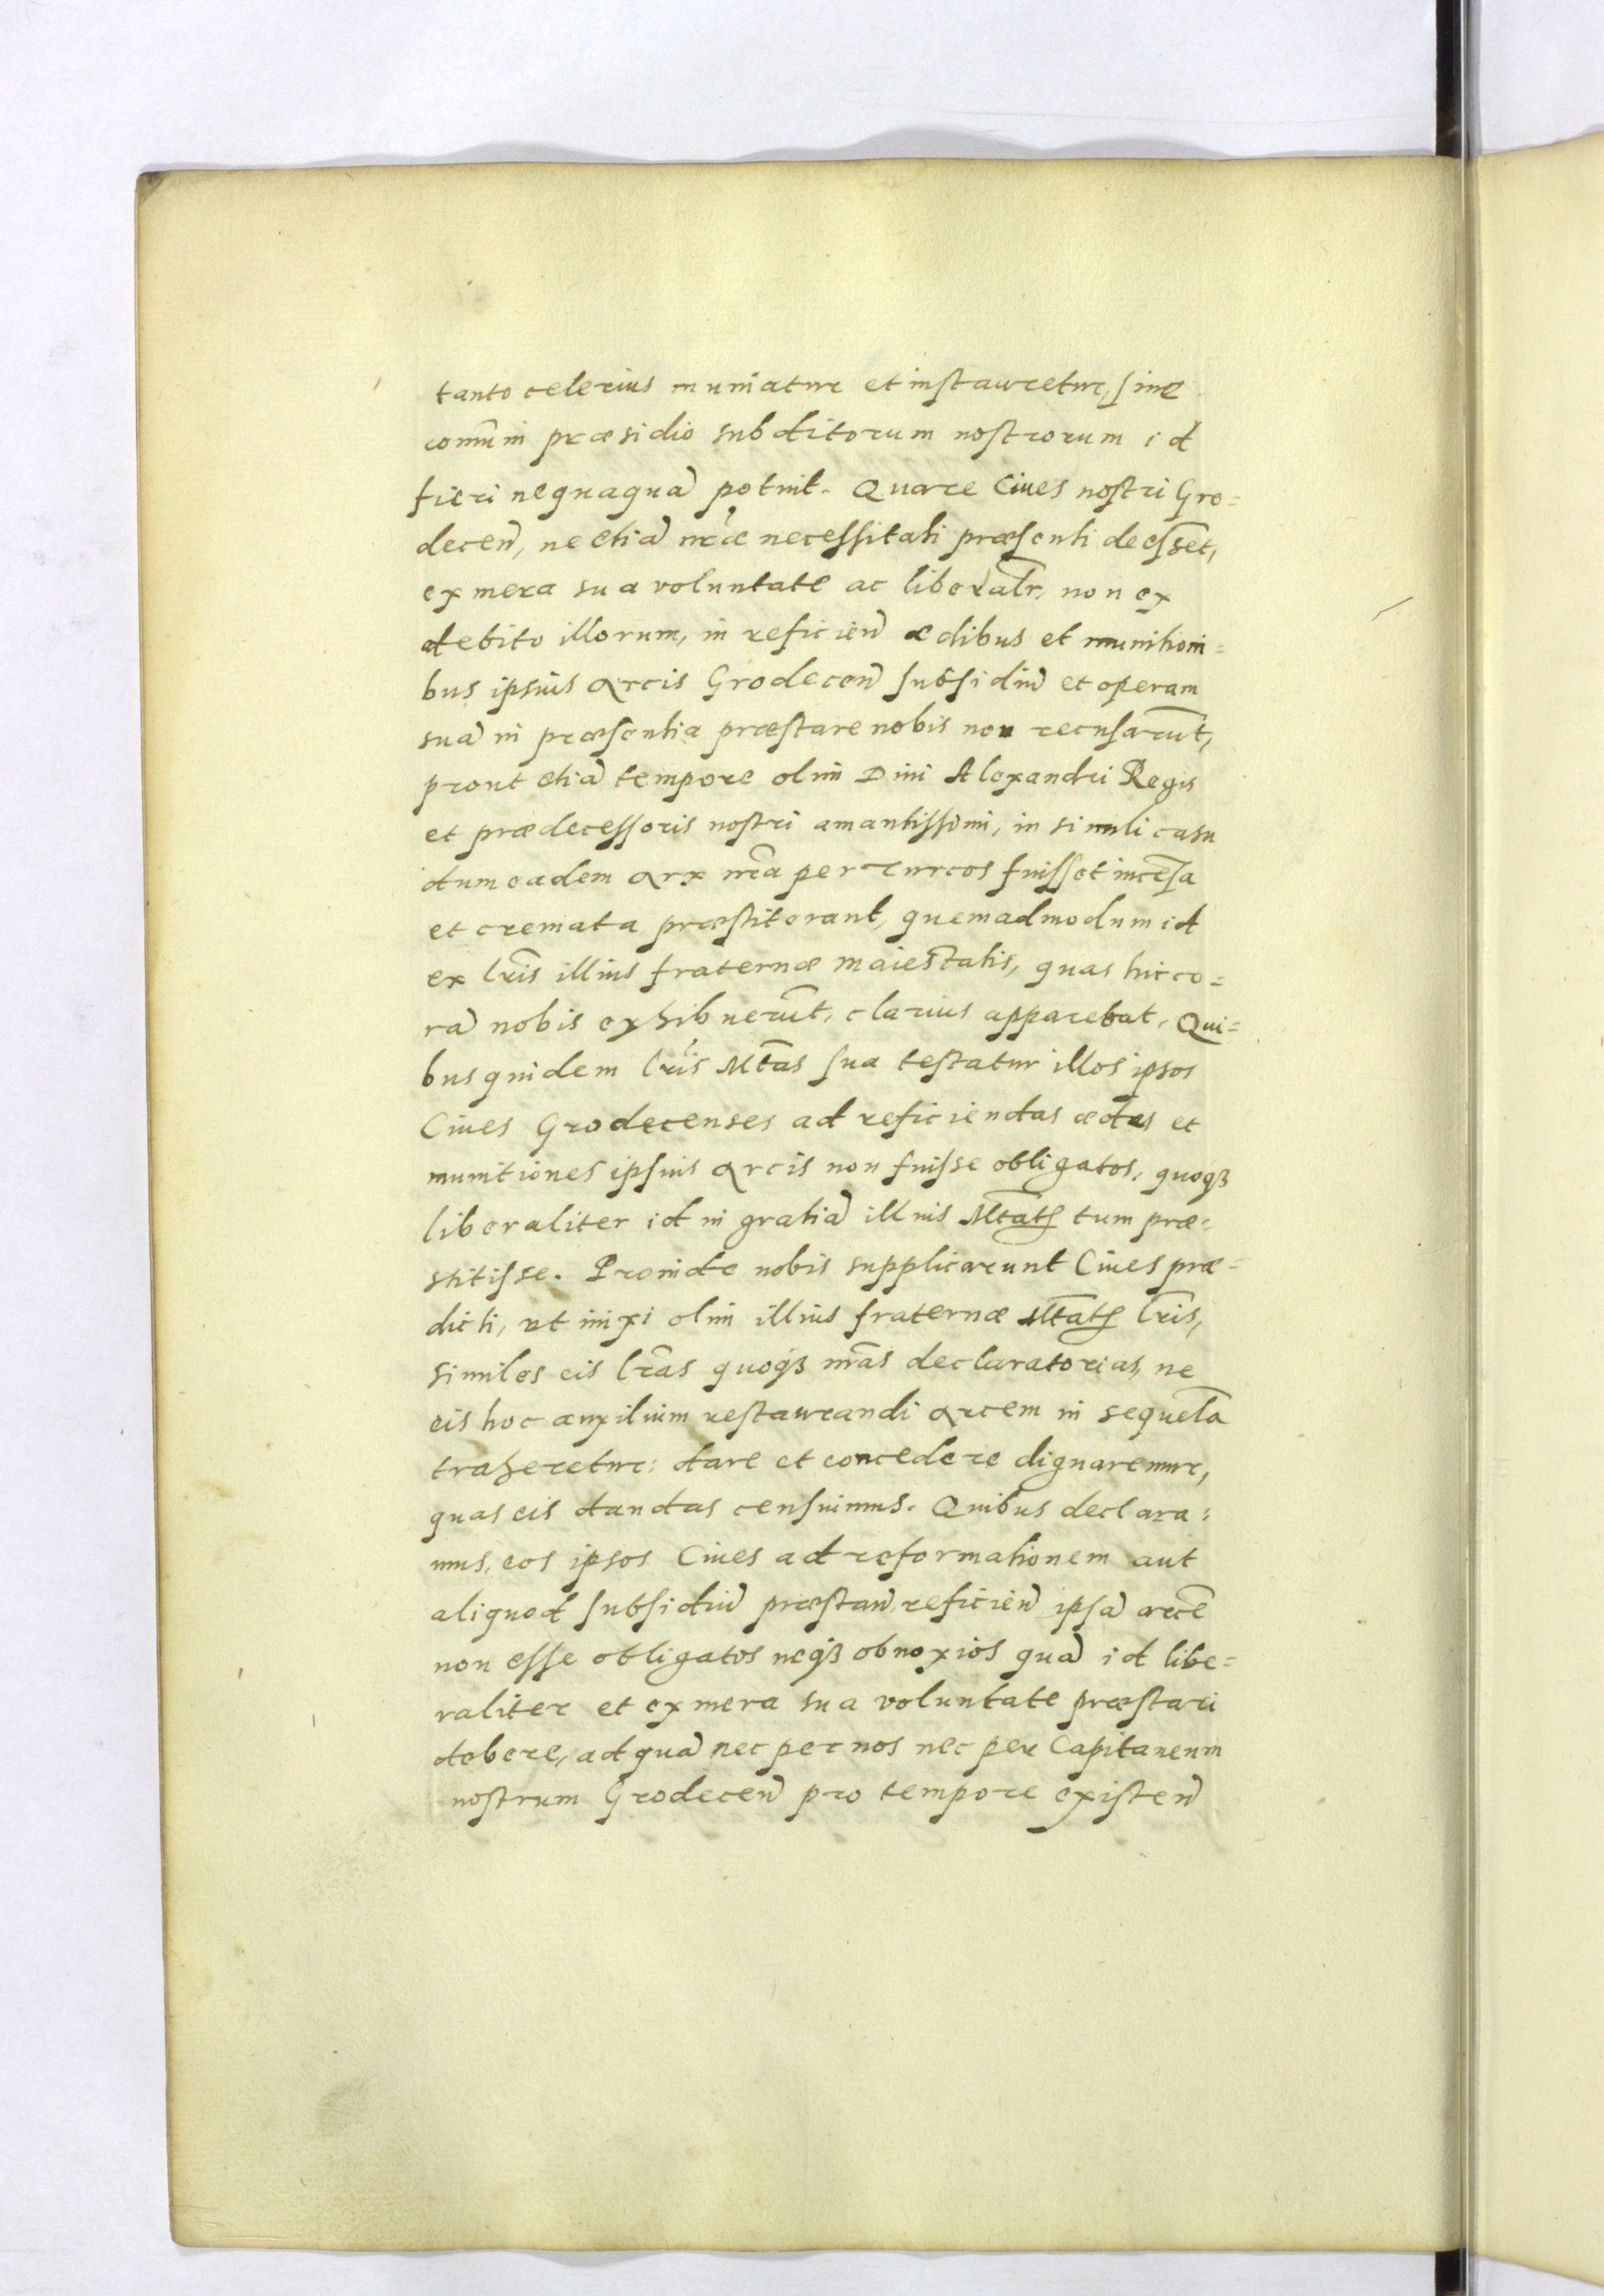 tanto celerius muniatur et instauretur, sine
com̃uni præsidio subditorum nostrorum id
fieri nequaquã potuit. Quare Ciues nostri Gro=
decen̄, ne etiã nr̃æ necessitati præsenti deess̃et,
ex mera sua voluntate ac liberalr̃, non ex
debito illorum, in reficien̄ ædibus et munitioni=
bus ipsius Arcis Grodecen̄ subsidiũ et operam
suã in præsentia præstare nobis non recusarũt,
prout etiã tempore olim Diui Alexandri Regis
et prædecessoris nostri amantissimi, in simili casu
dum eadem Arx nr̃a per Turcos fuisset incẽsa
et cremata præstiterant, quemadmodum id
ex lr̃is illius fraternæ maiestatis, quas hic co=
rã nobis exhibuerũt, clarius apparebat. Qui=
bus quidem lr̃is Mt̃as sua testatur illos ipsos
Ciues Grodecenses ad reficiendas ædes et
munitiones ipsius Arcis non fuisse obligatos, quoqꝫ
liberaliter id in gratiã illius Mt̃atꝭ tum præ=
stitisse. Proinde nobis supplicarunt Ciues præ=
dicti, vt inixi olim illius fraternæ Mt̃atꝭ lr̃is,
similes eis lr̃as quoqꝫ nr̃as declaratorias, ne
eis hoc auxilium restaurandi Arcem in sequelã
traheretur: dare et concedere dignaremur,
quas eis dandas censuimus. Quibus declara=
mus, eos ipsos Ciues ad reformationem aut
aliquod subsidiũ præstan̄ reficien̄ ipsã arcẽ
non esse obligatos neqꝫ obnoxios quã id libe=
raliter et ex mera sua voluntate præstari
debere, ad quã nec per nos nec per Capitaneum
nostrum Grodecen̄ pro tempore existen̄